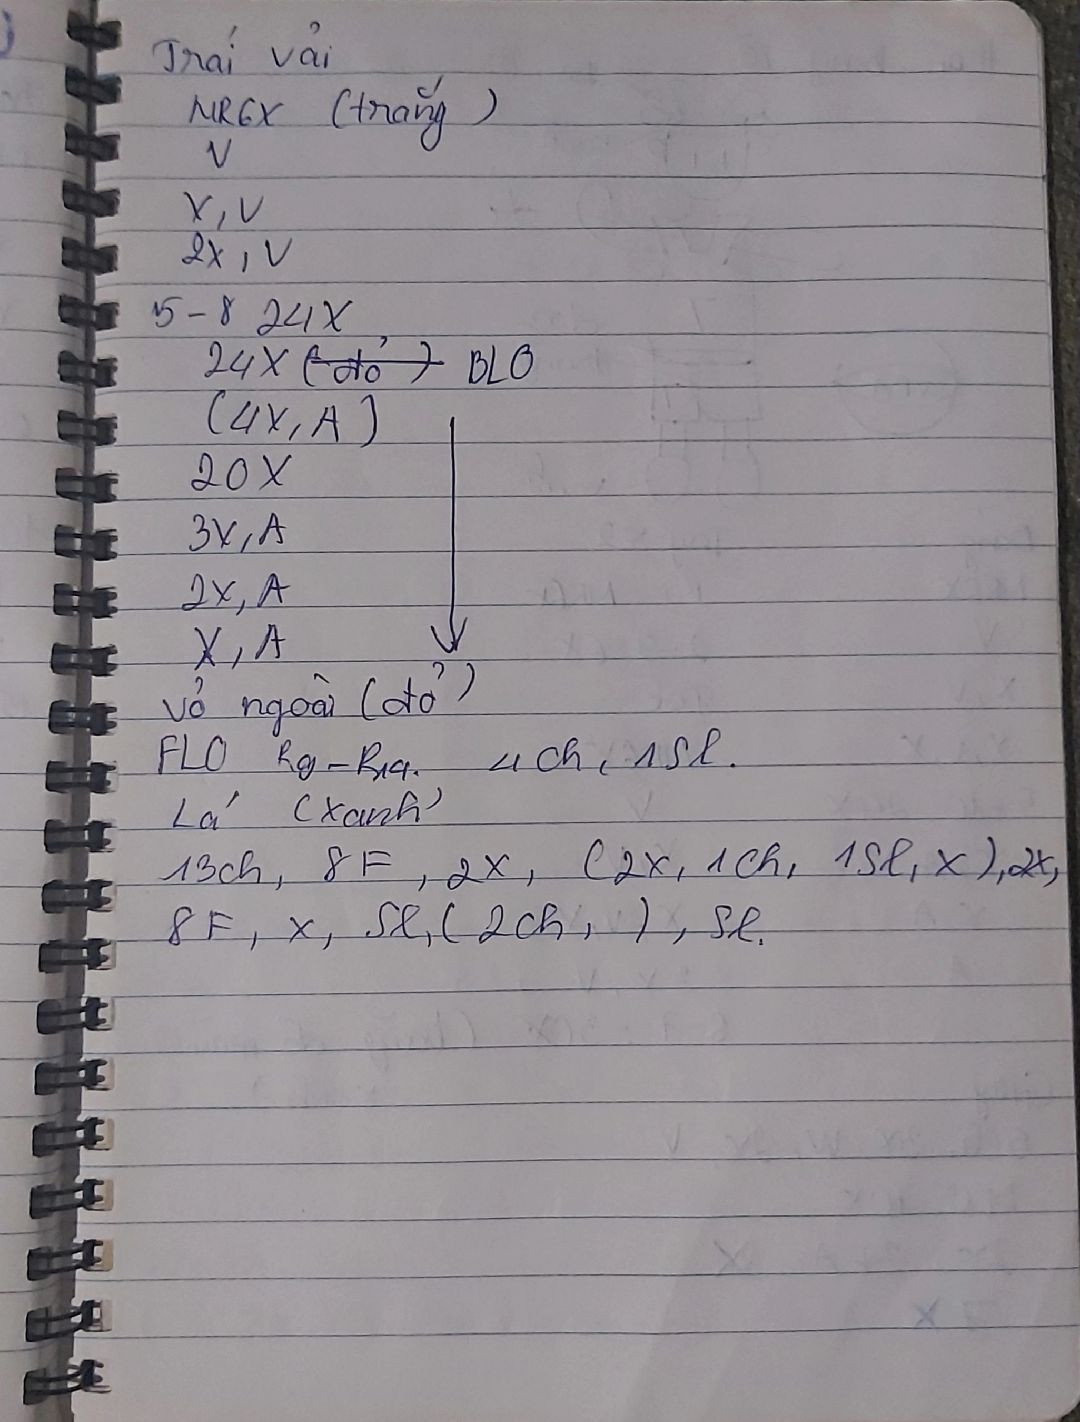 Trái vải
MR6X (trắng)
V
X, V
2X, V
5-8 24X
24X (đỏ) BLO
(4X, A)
20X
3X, A
2X, A
X, A
vỏ ngoài (đỏ)
FLO R9-R14. 4ch, 1Sl.
Lá (xanh)
13ch, 8F, 2X, (2X, 1ch, 1Sl, X), 2X,
8F, X, Sl, (2ch, ), Sl.